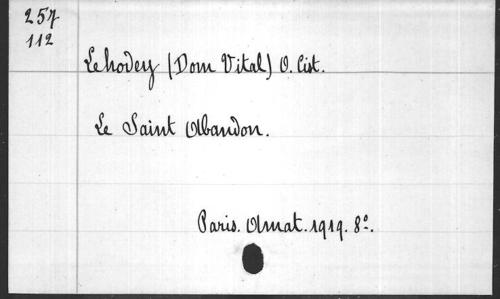 257
112
Lehodey (Dom Vital) O. Cist.
Le Saint Abandon.
Paris. Amat. 1919. 8°.